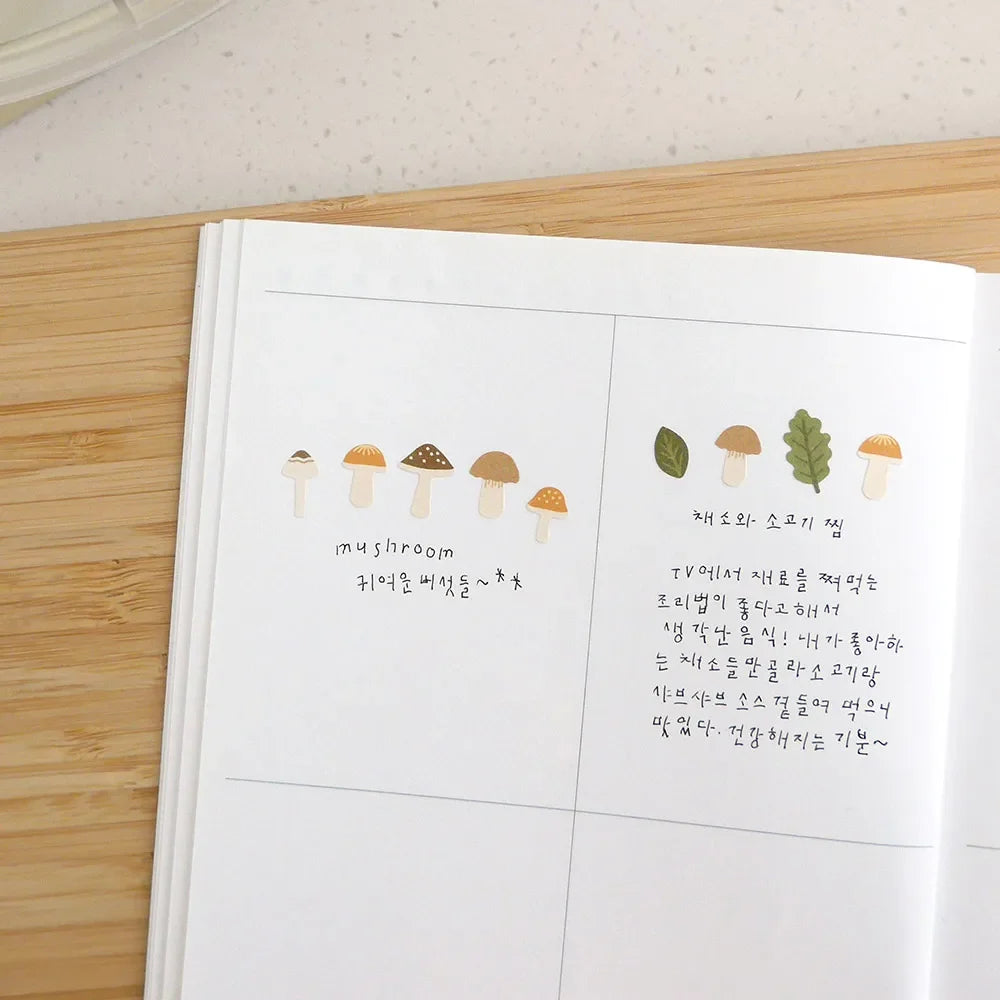 mushroom
귀여운 버섯들~**
채소와 소고기 찜
TV에서 재료를 쪄먹는
조리법이 좋다고 해서
생각난 음식! 내가 좋아하
는 채소들만 골라 소고기랑
샤브샤브 소스 곁들여 먹으니
맛있다. 건강해지는 기분~